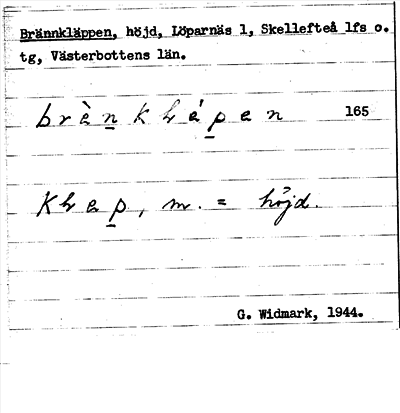 Brännkläppen, höjd, Löparnäs 1, Skellefteå lfs o.
tg, Västerbottens län.
brὲn̲kḷáp̲en 165
Kḷap̲, m. = höjd.
G. Widmark, 1944.